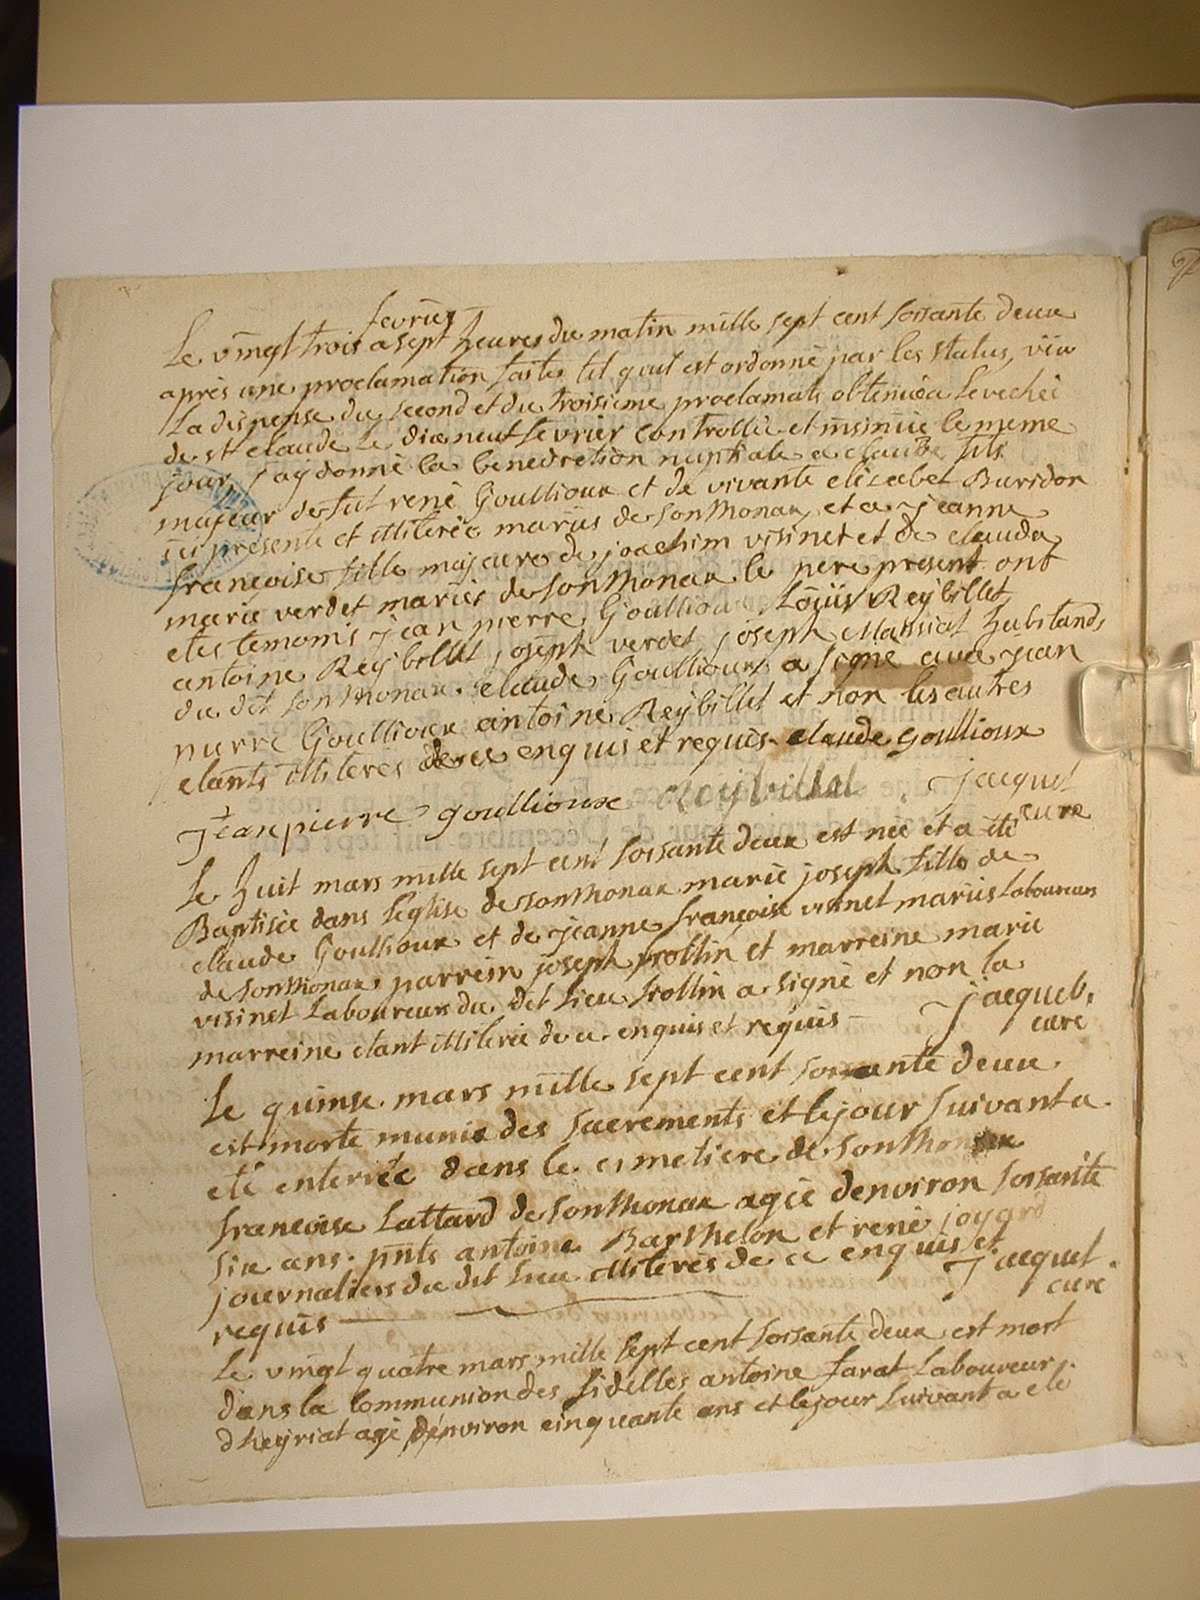 fevrier
Le vingt trois a sept heures du matin mille sept cent soisante deux
après une proclamation faite tel quil est ordonné par les statuts, veu
La dispense du second et du troisieme proclamats obtenue a Leveché
de st claude Le dixneuf fevrier controllée et insinuée le meme
jour, jay donné la benediction nuptiale a claude fils
majeur de fut rené Goullioux et de vivante elizabet Buridon
ici presente et illiterée mariés de Sonthonax, et a jeanne
françoise fille majeure de joachim visinet et de clauda
marie verdet mariés de Sonthonax le pere present ont
etes temoins jean pierre Goullioux, Loüis Reybillet,
antoine Reybillet joseph verdet joseph Massiat habitands
du dit Sonthonax. claude Goullioux a signé avec jean
pierre Goullioux antoine Reybillet et non les autres
etants illiteres de ce enquis et requis. claude goullioux
jean pierre goullioux Reybillet jacquet
cure
Le huit mars mille sept cent soisante deux est née et a été
Baptisée dans l'eglise de Sonthonax marie joseph fille de
claude Goullioux et de jeanne françoise visinet mariés Laboureurs
de Sonthonax, parrein joseph frollin et marreine marie
visinet Laboureurs du dit Lieu frollin a signé et non la
marreine etant illiterée de ce enquis et requis jacquet,
curé
Le quinse mars mille sept cent soixante deux
est morte munie des sacrements et le jour suivant a
eté enterrée dans le cimetiere de Sonthonax
françoise Lattard de Sonthonax agée denviron soisante
six ans. pnts antoine Barthelon et rené joyard
journaliers du dit Lieu illiterés de ce enquis et
requis jacquet
curé
Le vingt quatre mars mille sept cent soisante deux est mort
dans la Communion des fidelles antoine farat Laboureur
dheyriat agé denviron cinquante ans et le jour suivant a eté